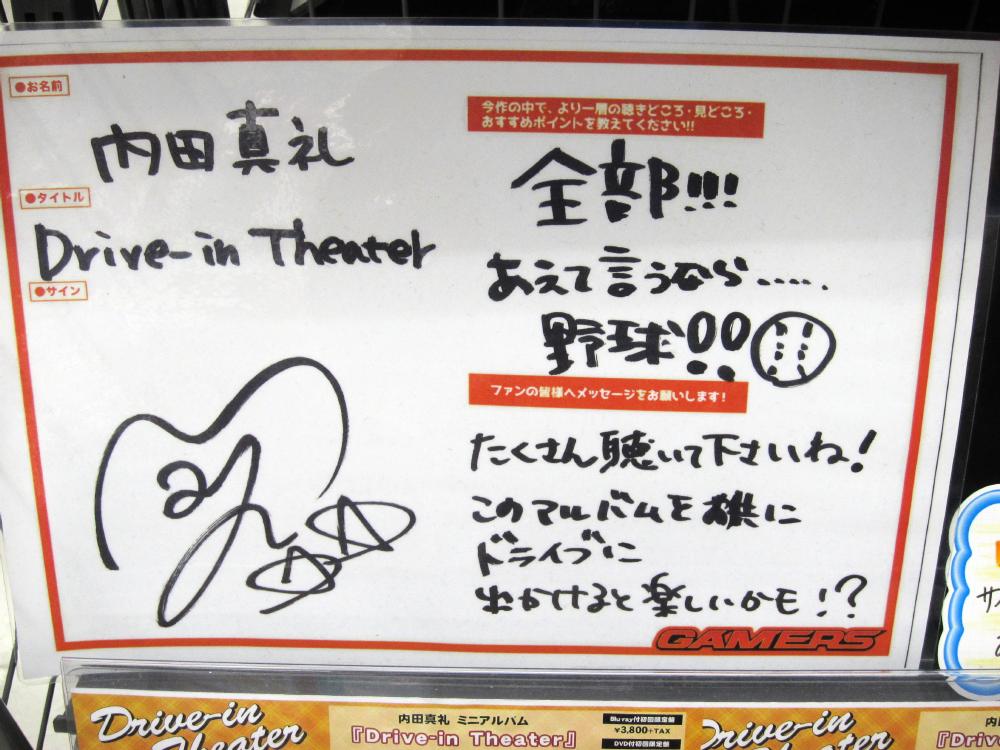 ●お名前
内田真礼
●タイトル
Drive-in Theater
●サイン
今作の中で、より一層の聴きどころ・見どころ・
おすすめポイントを教えてください!!
全部!!!
あえて言うなら.....
野球!!
ファンの皆様へメッセージをお願いします!
たくさん聴いて下さいね!
このアルバムを横に
ドライブに
出かけると楽しいかも!?
GAMERS
Drive-in
Theater
内田真礼 ミニアルバム
『Drive-in Theater』
Blu-ray付初回限定盤
¥3,800+TAX
DVD付初回限定盤
Drive-in
Theater